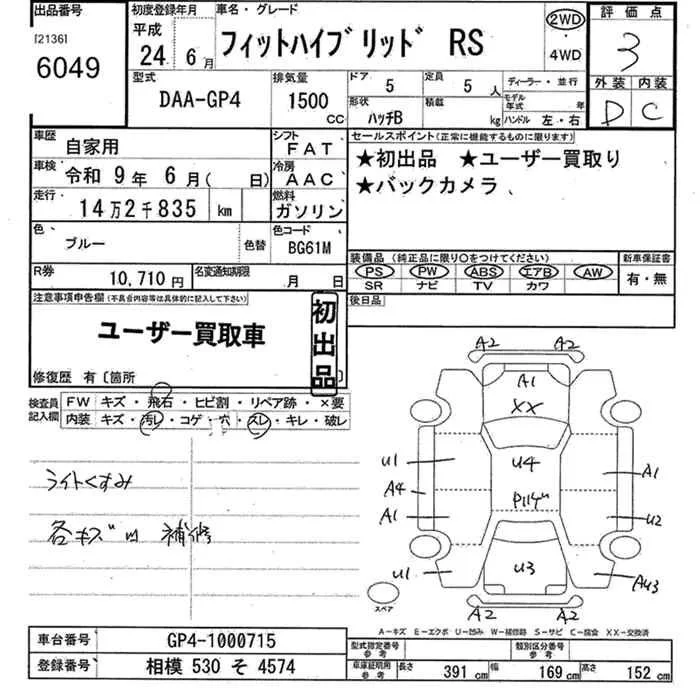 出品番号
[2136]
6049
初度登録年月
平成
24 6月
車名・グレード
フィットハイブリッド RS
2WD
・
4WD
評価点
3
外装 内装
D C
型式
DAA-GP4
排気量
1500
CC
ドア
5
定員
5 人
形状
ハッチB
積載
kg
ディーラー・並行
モデル年式 年
ハンドル 左・右
車歴
自家用
シフト
FAT
車検
令和 9年 6月( 日)
冷房
AAC
走行
14万2千835 km
燃料
ガソリン
色
ブルー
色替
色コード
BG61M
R券
10,710円
名変通知期限
月 日
セールスポイント(正常に機能するものに限ります)
★初出品 ★ユーザー買取り
★バックカメラ
装備品(純正品に限り○をつけてください)
PS PW ABS エアB AW
SR ナビ TV カワ
新車保証書
有・無
後日品
注意事項申告欄(不具合内容等は具体的に記入して下さい)
ユーザー買取車
初出品
修復歴 有〔箇所 〕
検査員記入欄
FW キズ・飛石・ヒビ割・リペア跡・×要
内装 キズ・汚レ・コゲ・穴・スレ・キレ・破レ
ライトくすみ
各キズ凹 補修
A2 A2
A1
XX
U1 U4 A1
A4 P
A1 U2
U1 U3 AU3
A2 A2
スペア
A-キズ E-エクボ U-凹み W-補修跡 S-サビ C-腐食 XX-交換済
車台番号
GP4-1000715
登録番号
相模 530 そ 4574
型式指定番号
参考
類別区分番号
参考
車庫証明用
参考
長さ 391 cm 幅 169 cm 高さ 152 cm